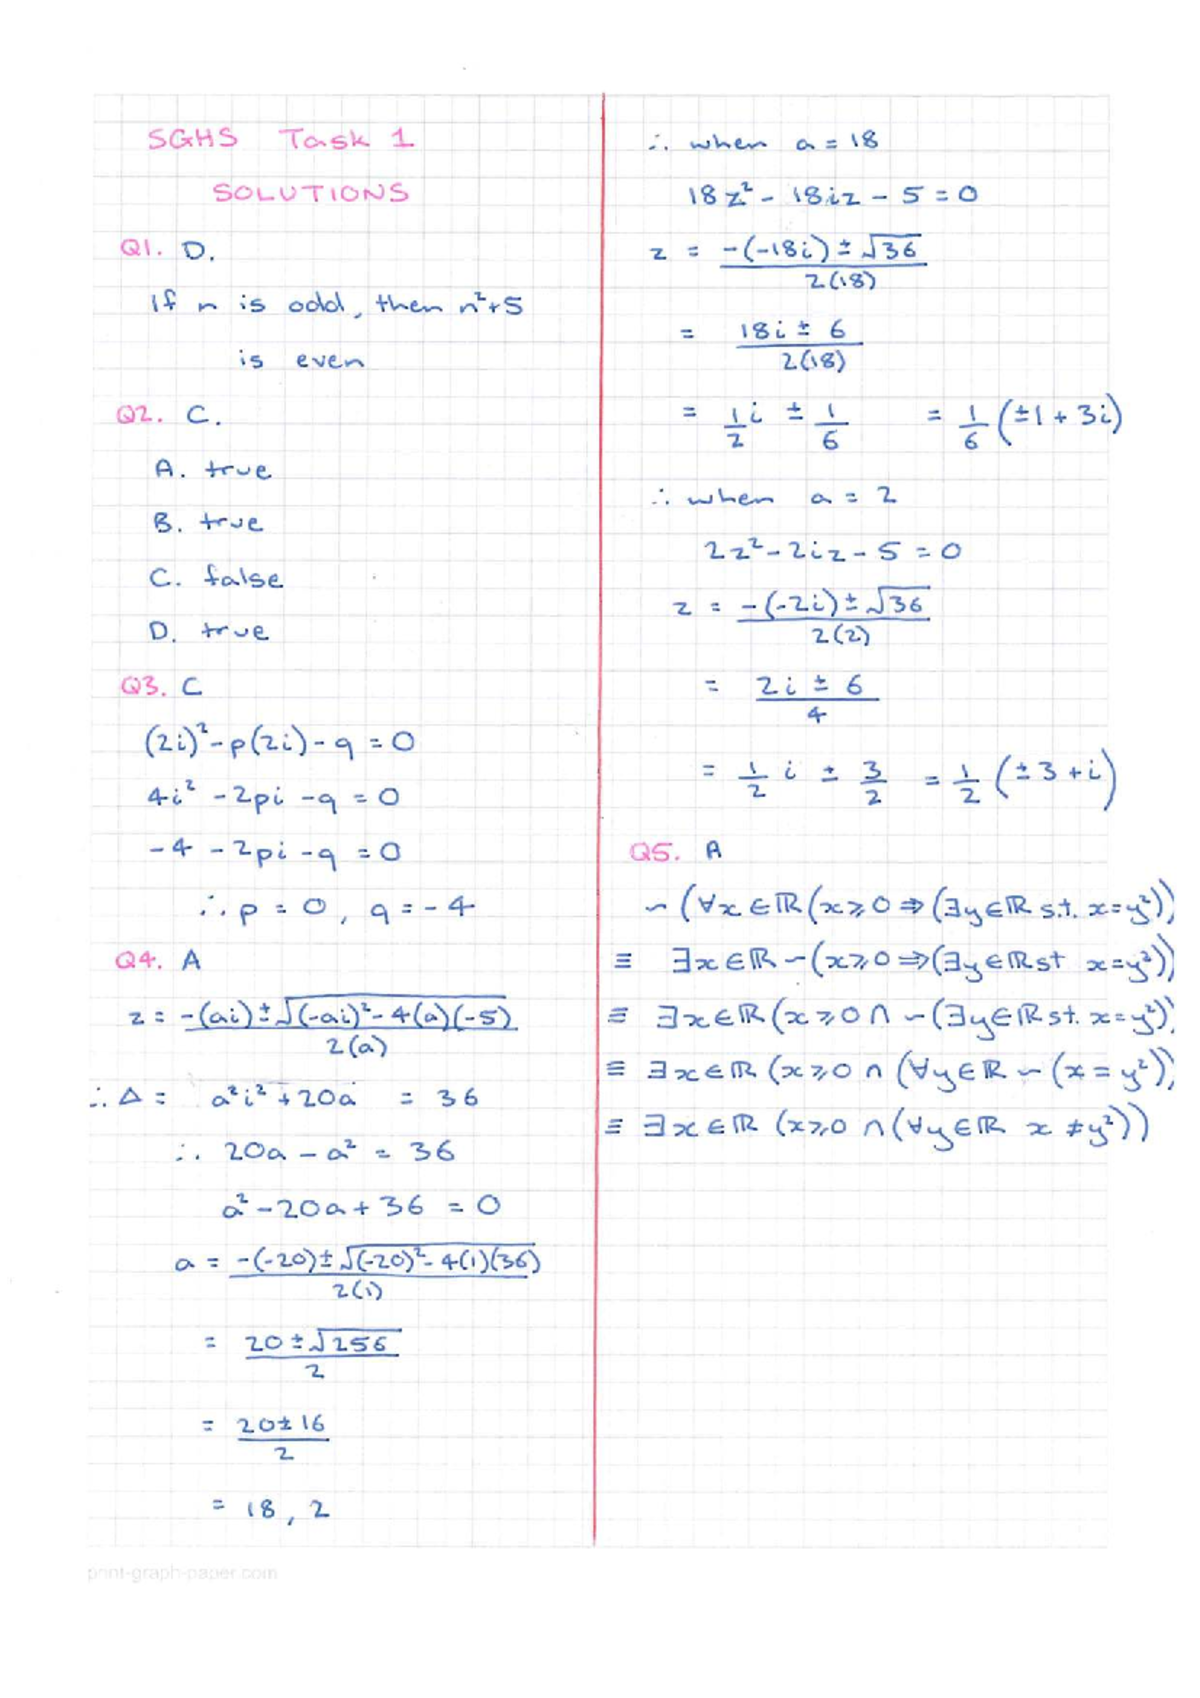 SGHS Task 1
SOLUTIONS
Q1. D.
If n is odd, then n²+5
is even
Q2. C.
A. true
B. true
C. false
D. true
Q3. C
(2i)² - p(2i) - q = 0
4i² - 2pi - q = 0
-4 - 2pi - q = 0
∴ p = 0, q = -4
Q4. A
z = (-(ai) ± √((-ai)² - 4(a)(-5))) / 2(a)
∴ Δ = a²i² + 20a = 36
∴ 20a - a² = 36
a² - 20a + 36 = 0
a = (-(-20) ± √((-20)² - 4(1)(36))) / 2(1)
= (20 ± √256) / 2
= (20 ± 16) / 2
= 18, 2
∴ when a = 18
18z² - 18iz - 5 = 0
z = (-(-18i) ± √36) / 2(18)
= (18i ± 6) / 2(18)
= 1/2 i ± 1/6 = 1/6 (±1 + 3i)
∴ when a = 2
2z² - 2iz - 5 = 0
z = (-(-2i) ± √36) / 2(2)
= (2i ± 6) / 4
= 1/2 i ± 3/2 = 1/2 (±3 + i)
Q5. A
~(∀x∈ℝ(x⩾0 ⇒ (∃y∈ℝ s.t. x=y²))
≡ ∃x∈ℝ ~(x⩾0 ⇒ (∃y∈ℝ st x=y²))
≡ ∃x∈ℝ (x⩾0 ∩ ~(∃y∈ℝ st. x=y²))
≡ ∃x∈ℝ (x⩾0 ∩ (∀y∈ℝ ~(x=y²))
≡ ∃x∈ℝ (x⩾0 ∩ (∀y∈ℝ x≠y²))
print-graph-paper.com